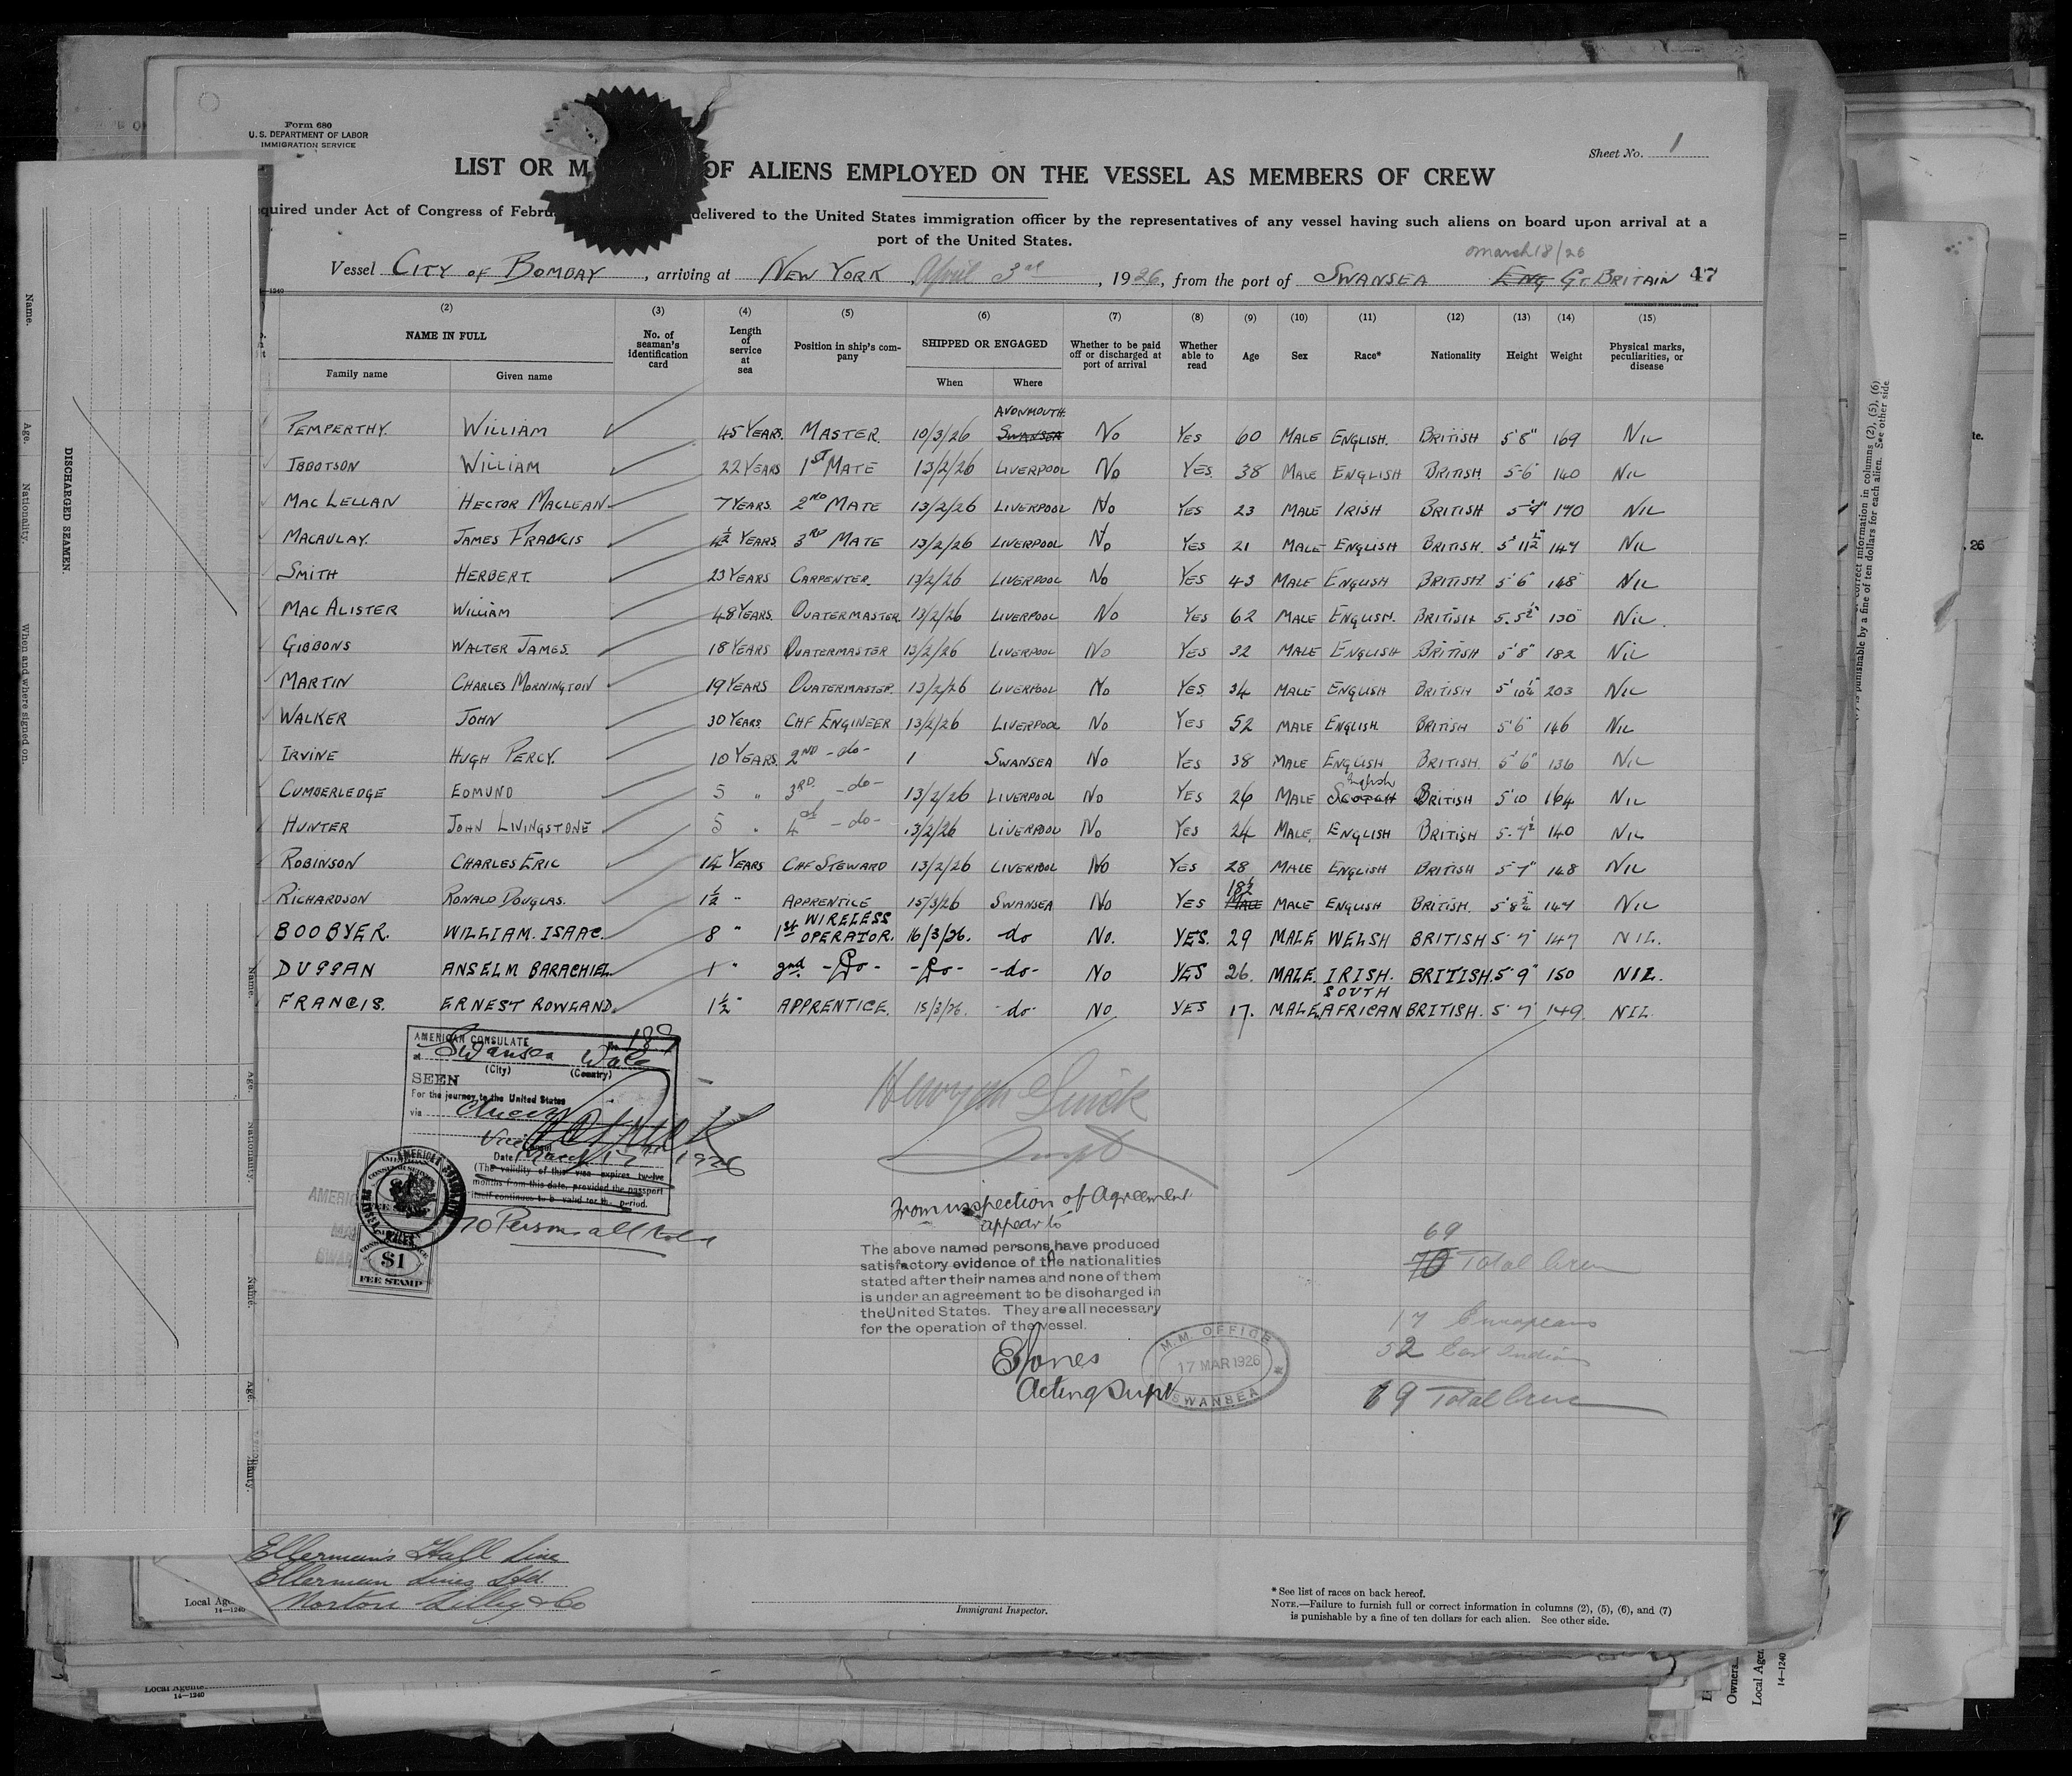 Form 680
U.S. DEPARTMENT OF LABOR
IMMIGRATION SERVICE
Sheet No. 1
LIST OR M OF ALIENS EMPLOYED ON THE VESSEL AS MEMBERS OF CREW
quired under Act of Congress of Febru delivered to the United States immigration officer by the representatives of any vessel having such aliens on board upon arrival at a
port of the United States.
March 18/26
Vessel CITY OF BOMBAY, arriving at NEW YORK April 3rd, 1926, from the port of SWANSEA ENG GT. BRITAIN 47
(2) (3) (4) (5) (6) (7) (8) (9) (10) (11) (12) (13) (14) (15)
NAME IN FULL No. of seaman's identification card Length of service at sea Position in ship's company SHIPPED OR ENGAGED Whether to be paid off or discharged at port of arrival Whether able to read Age Sex Race* Nationality Height Weight Physical marks, peculiarities, or disease
Family name Given name When Where
AVONMOUTH.
PEMPERTHY. WILLIAM 45 YEARS. MASTER. 10/3/26 SWANSEA NO YES 60 MALE ENGLISH. BRITISH 5'8" 169 NIL
IBBOTSON WILLIAM 22 YEARS 1ST MATE 13/2/26 LIVERPOOL NO YES. 38 MALE ENGLISH BRITISH. 5-6 140 NIL
MAC LELLAN HECTOR MACLEAN 7 YEARS. 2ND MATE 13/2/26 LIVERPOOL NO YES 23 MALE IRISH BRITISH 5'9" 170 NIL
MACAULAY. JAMES FRANCIS 4½ YEARS. 3RD MATE 13/2/26 LIVERPOOL NO YES 21 MALE ENGLISH BRITISH. 5'11½ 147 NIL
SMITH HERBERT. 23 YEARS CARPENTER. 13/2/26 LIVERPOOL NO YES 43 MALE ENGLISH BRITISH 5'6" 148 NIL
MAC ALISTER WILLIAM 48 YEARS. QUATERMASTER. 13/2/26 LIVERPOOL NO YES 62 MALE ENGLISH. BRITISH 5.5½" 130 NIL.
GIBBONS WALTER JAMES. 18 YEARS QUATERMASTER 13/2/26 LIVERPOOL NO YES 32 MALE ENGLISH BRITISH 5'8" 182 NIL
MARTIN CHARLES MORNINGTON 19 YEARS QUATERMASTER. 13/2/26 LIVERPOOL NO YES. 34 MALE ENGLISH BRITISH 5'10¼ 203 NIL
WALKER JOHN 30 YEARS CHF ENGINEER 13/2/26 LIVERPOOL NO YES 52 MALE ENGLISH. BRITISH 5'6" 146 NIL
IRVINE HUGH PERCY. 10 YEARS. 2ND -do- 1 SWANSEA NO YES 38 MALE ENGLISH BRITISH. 5'6" 136 NIL
English
CUMBERLEDGE EDMUND 5 " 3RD. -do- 13/2/26 LIVERPOOL NO YES 26 MALE SCOTCH BRITISH 5'10 164 NIL
HUNTER JOHN LIVINGSTONE 5 " 4th -do- 13/2/26 LIVERPOOL NO YES 24 MALE. ENGLISH BRITISH 5-7½ 140 NIL
ROBINSON CHARLES ERIC 14 YEARS CHF STEWARD 13/2/26 LIVERPOOL NO YES 28 MALE ENGLISH BRITISH 5-7" 148 NIL
18½
RICHARDSON RONALD DOUGLAS. 1½ " APPRENTICE 15/3/26 SWANSEA NO YES MALE MALE ENGLISH BRITISH. 5'8¾" 147 NIL
WIRELESS
BOOBYER. WILLIAM. ISAAC. 8 " 1st OPERATOR. 16/3/26. do NO. YES. 29 MALE WELSH BRITISH 5-7" 147 NIL.
DUGGAN ANSELM BARACHIEL 1 " 2nd. -Do- -Do- -do- NO YES 26. MALE. IRISH. BRITISH. 5-9" 150 NIL.
SOUTH
FRANCIS. ERNEST ROWLAND. 1½ " APPRENTICE. 15/3/26. -do- NO YES 17. MALE. AFRICAN BRITISH. 5-7" 149. NIL.
AMERICAN CONSULATE No. 189
at Swansea Wales
(City) (Country)
SEEN
For the journey to the United States
via Direct
Vice Consul
Date March 17th 1926
(The validity of this visa expires twelve
months from this date, provided the passport
itself continues to be valid for the period.
70 Persons all told
AMERICAN
FEE STAMP
$1
FEE STAMP
Supt
From inspection of Agreement
appear to
The above named persons have produced
satisfactory evidence of the nationalities
stated after their names and none of them
is under an agreement to be discharged in
the United States. They are all necessary
for the operation of the vessel.
E Jones
Acting Supt
M.M. OFFICE
17 MAR 1926
SWANSEA
69
70 Total Crew
17 Europeans
52 East Indians
69 Total Crew
Ellerman's Hall Line
Ellerman Lines Ltd.
Local Age Norton Lilly & Co
14—1240
Immigrant Inspector.
* See list of races on back hereof.
NOTE.—Failure to furnish full or correct information in columns (2), (5), (6), and (7)
is punishable by a fine of ten dollars for each alien. See other side.
Local Agents
14—1240
DISCHARGED SEAMEN.
Name. Age. Nationality. When and where signed on.
Name. Age. Nationality.
Name. Age.
correct information in columns (2), (5), (6)
is punishable by a fine of ten dollars for each alien. See other side
te.
, 26
Owners
Local Agen
14—1240